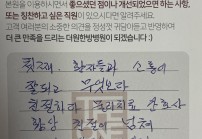 본원을 이용하시면서 좋으셨던 점이나 개선되었으면 하는 사항,
또는 칭찬하고 싶은 직원이 있으시다면 알려주세요.
고객 여러분의 소중한 의견을 정성껏 귀담아듣고 반영하여
더 큰 만족을 드리는 더원한방병원이 되겠습니다 :)
첫째 환자들과 소통이
잘되고 무엇보다
친절하다 물리치료 간호사
항상 친절이 넘쳐